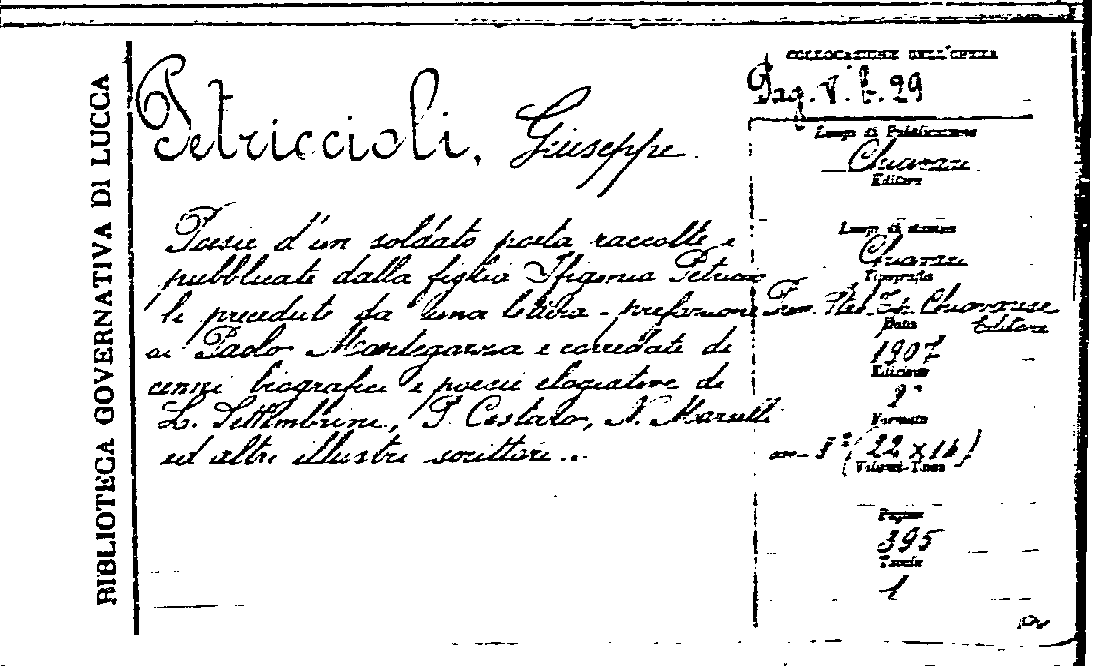 BIBLIOTECA GOVERNATIVA DI LUCCA
Petriccioli, Giuseppe.
Poesie d'un soldato poeta raccolte e
pubblicate dalla figlia Ifigenia Petriccio
li precedute da una lettera-prefazione
di Paolo Mantegazza e corredate di
cenni biografici e poesie elogiative di
L. Settembrini, P. Cestaro, N. Marselli
ed altri illustri scrittori...
COLLOCAZIONE DELL'OPERA
Pag. V. b. 29
Luogo di Pubblicazione
Chiavari
Editore
Luogo di stampa
Chiavari
Tipografia
Chiavarese
Editore
Data
1907
Edizione
2ª
Formato
in-8° (22 x 16)
Volumi-Tomi
Pagine
395
Tavole
1